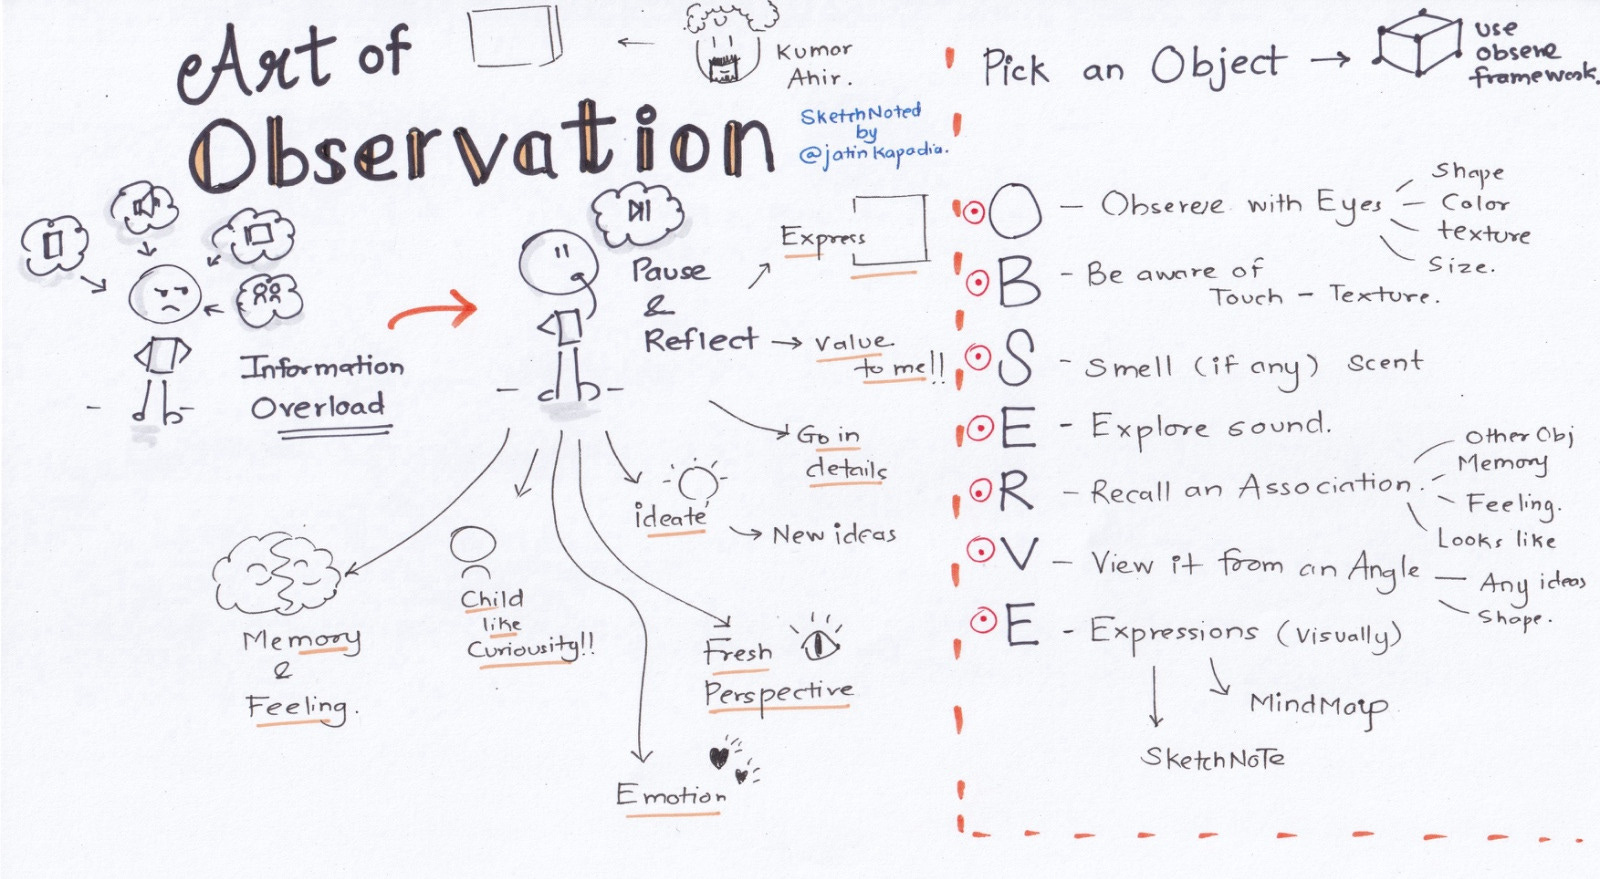 Art of
Observation
Kumar
Ahir.
SketchNoted
by
@jatinkapadia.
Information
Overload
Pause
&
Reflect
Express
value
to me!!
Go in
details
ideate
New ideas
Memory
&
Feeling.
Child
like
Curiousity!!
Fresh
Perspective
Emotion
Pick an Object
use
obserne
framework.
O - Obsereve with Eyes
Shape
Color
texture
Size.
B - Be aware of
Touch - Texture.
S - Smell (if any) Scent
E - Explore sound.
R - Recall an Association.
Other Obj
Memory
Feeling.
Looks like
V - View it from an Angle
Any ideas
Shape.
E - Expressions (visually)
MindMap
SketchNoTe